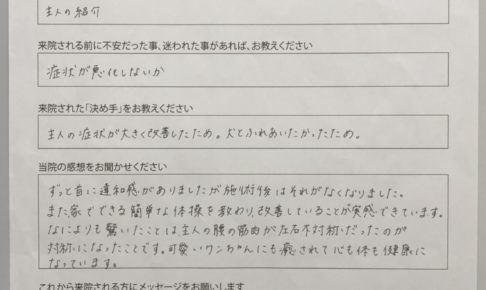 主人の紹介
来院される前に不安だった事、迷われた事があれば、お教えください
症状が悪化しないか
来院された「決め手」をお教えください
主人の症状が大きく改善したため。犬とふれあいたかったため。
当院の感想をお聞かせください
ずっと首に違和感がありましたが施術後はそれがなくなりました。
また家でできる簡単な体操を教わり、改善していることが実感できています。
なによりも驚いたことは主人の腰の筋肉が左右不対称だったのが
対称になったことです。可愛いワンちゃんにも癒されて心も体も健康に
なっています。
これから来院される方にメッセージをお願いします